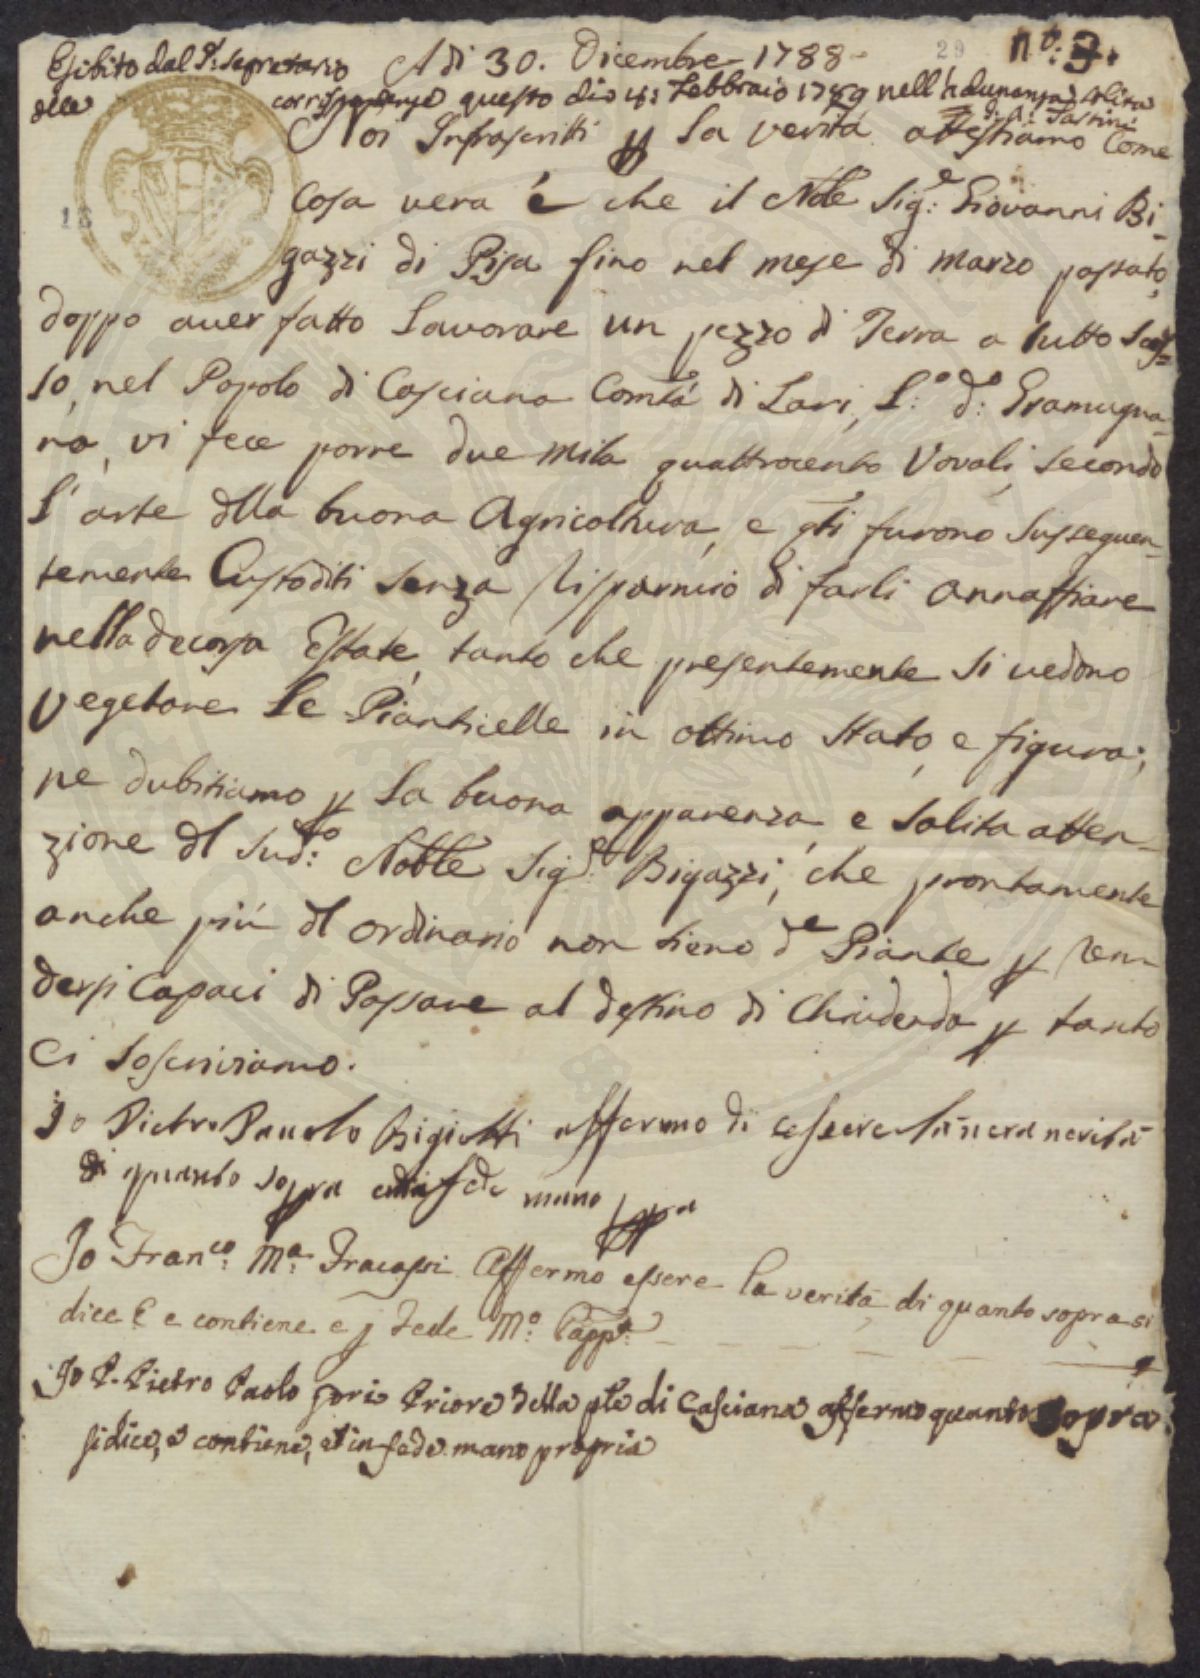 29 n.º 3.
Esibito dal S.r Segretario A dì 30. Dicembre 1788
delle corrispondenze questo dì 4: Febbraio 1789 nell'Adunanza solita
Noi Infrascritti p la verità attestiamo Come
Cosa vera è che il Noble Sig:e Giovanni Bi-
18
gazzi di Pisa fino nel mese di marzo passato,
doppo aver fatto Lavorare un pezzo di Terra a tutto Scas-
so, nel Popolo di Casciana Comtà di Lari, L:o d:o Gramugna-
na, vi fece porre due mila quattrocento Vovoli, secondo
l'arte dlla buona Agricoltura, e qti furono Susseguen-
temente Custoditi senza risparmio di farli annaffiare
nella decorsa Estate, tanto che presentemente si vedono
vegetare Le Pianticelle in ottimo stato, e figura;
ne dubitiamo p la buona apparenza, e solita atten-
zione dl Sud:to Noble Sig:re Bigazzi, che prontamente
anche più dl ordinario non sieno de Piante p ren-
dersi Capaci di Passare al destino di Chiudenda p tanto
Ci soscriviamo.
Io Pietro Pauolo Bigiotti affermo di essere la vera verità
di quanto sopra ed in fede mano ppra
Io Fran:co M:a Fracassi Affermo essere la verità di quanto sopra si
dice E e contiene e j Fede M:o Papp:a
Io P. Pietro Paolo Gori Priore della ple di Casciana affermo quanto sopra
si dice, e contiene, et in fede mano propria